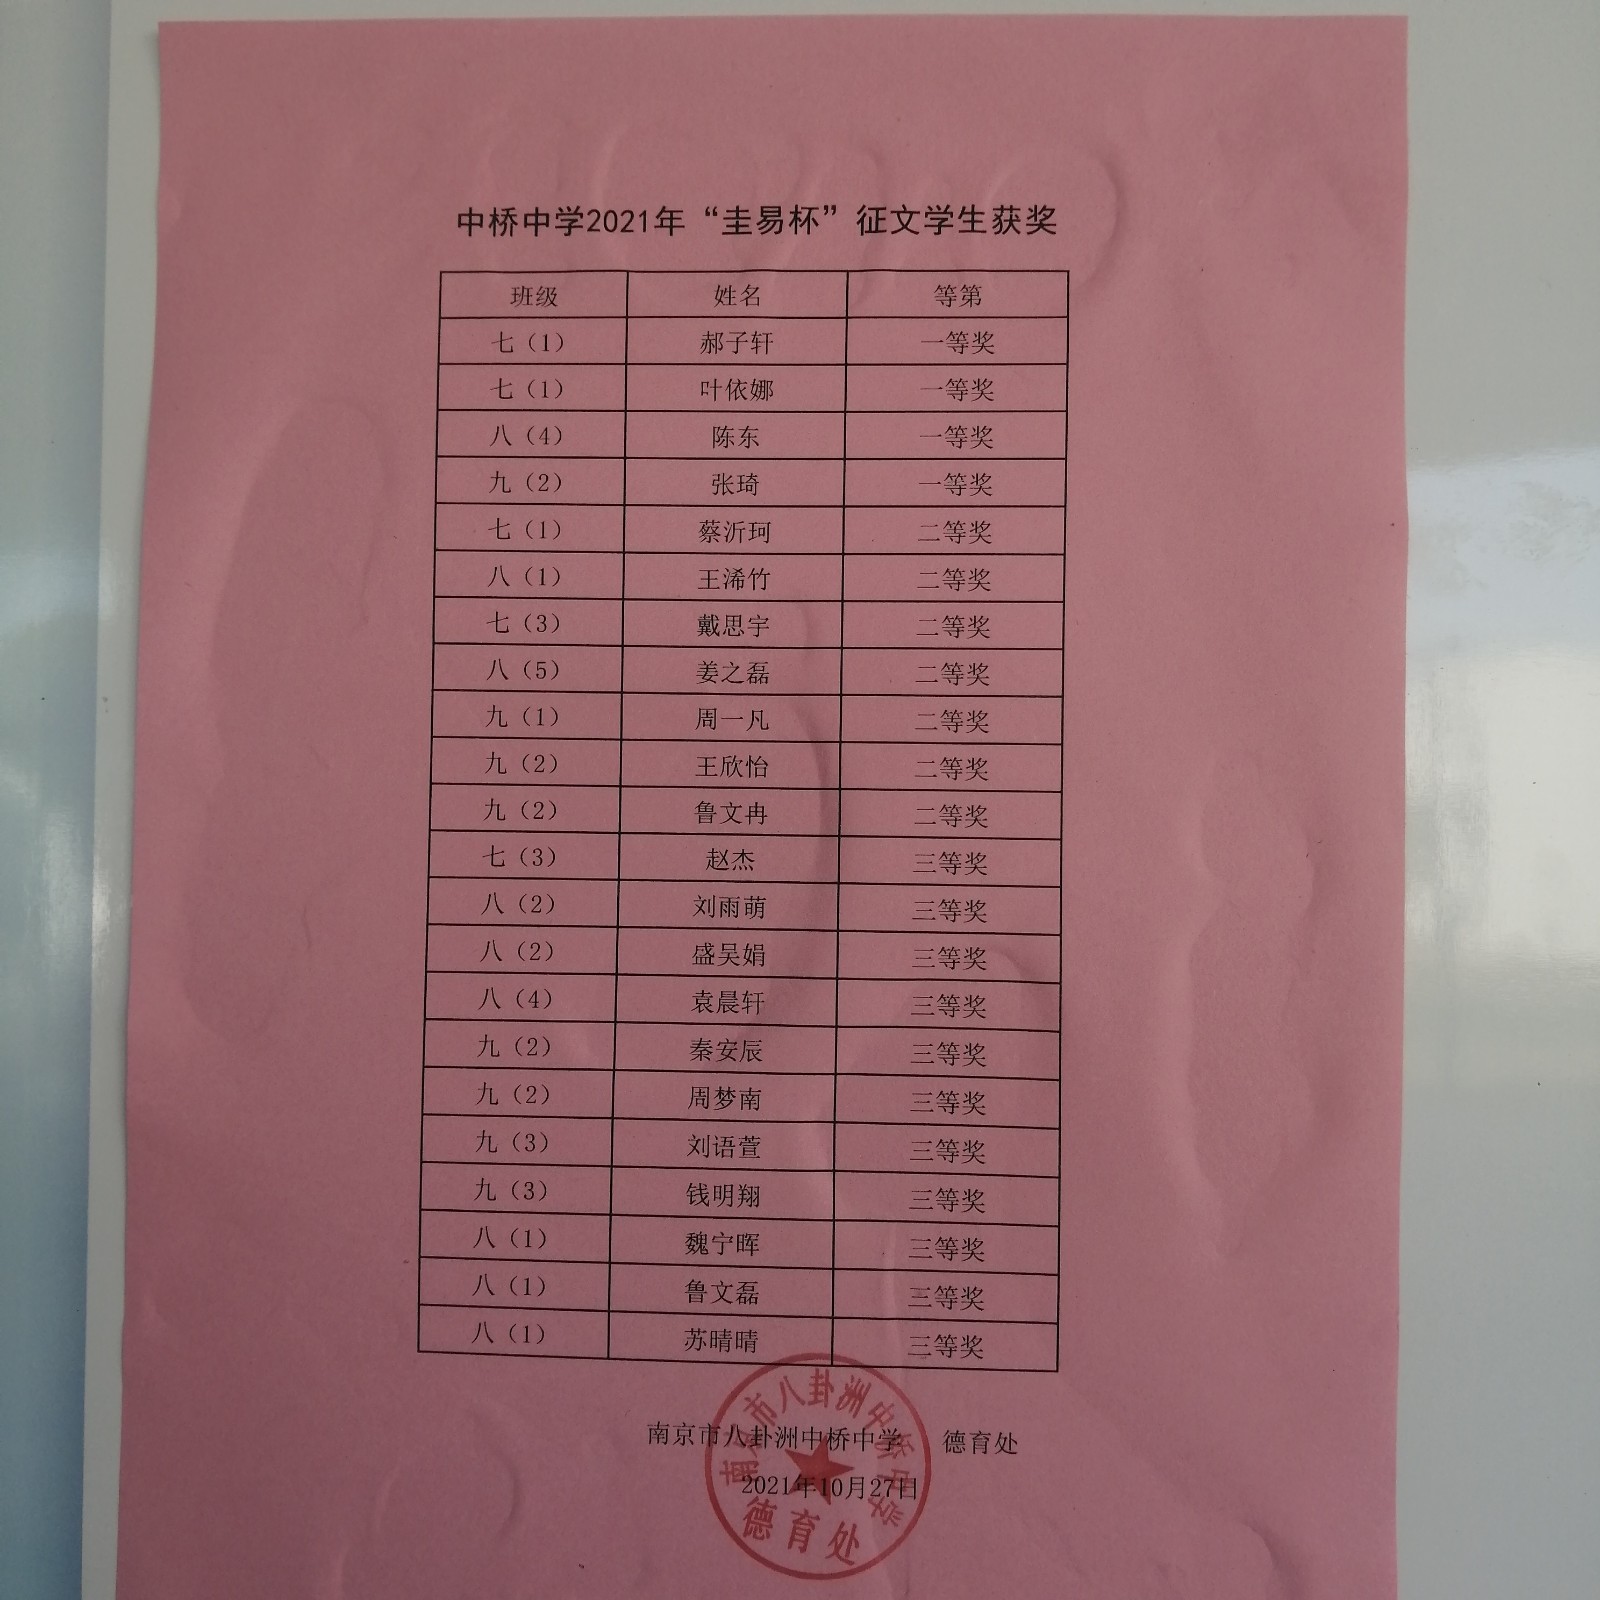 中桥中学2021年“圭易杯”征文学生获奖
班级 姓名 等第
七（1） 郝子轩 一等奖
七（1） 叶依娜 一等奖
八（4） 陈东 一等奖
九（2） 张琦 一等奖
七（1） 蔡沂珂 二等奖
八（1） 王浠竹 二等奖
七（3） 戴思宇 二等奖
八（5） 姜之磊 二等奖
九（1） 周一凡 二等奖
九（2） 王欣怡 二等奖
九（2） 鲁文冉 二等奖
七（3） 赵杰 三等奖
八（2） 刘雨萌 三等奖
八（2） 盛吴娟 三等奖
八（4） 袁晨轩 三等奖
九（2） 秦安辰 三等奖
九（2） 周梦南 三等奖
九（3） 刘语萱 三等奖
九（3） 钱明翔 三等奖
八（1） 魏宁晖 三等奖
八（1） 鲁文磊 三等奖
八（1） 苏晴晴 三等奖
南京市八卦洲中桥中学 德育处
2021年10月27日
南京市八卦洲中桥中学
德育处